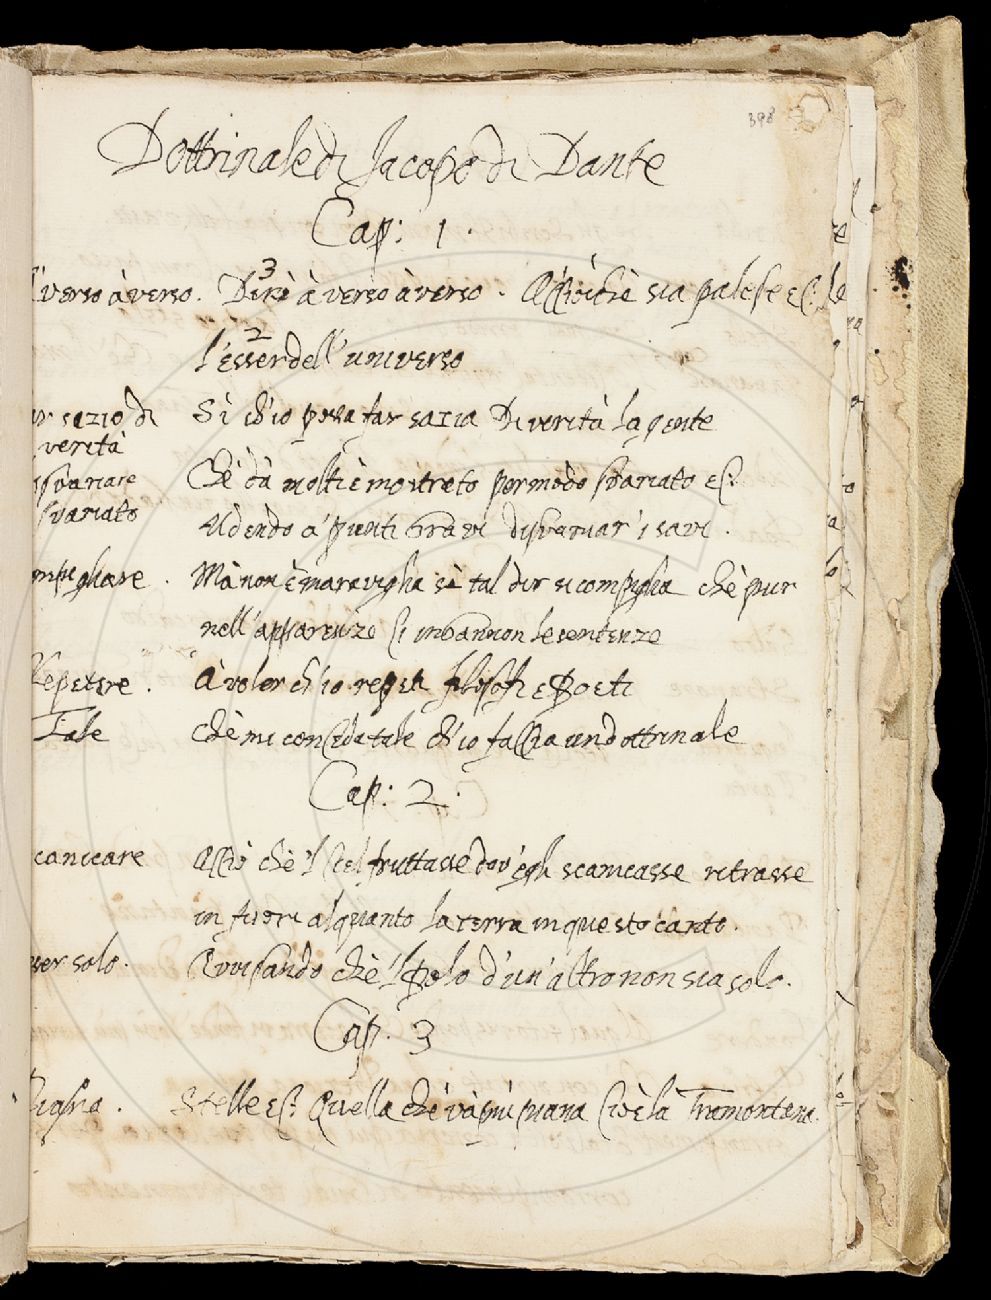 398
Dottrinale di Jacopo di Dante
Cap: 1.
verso à verso. Dirò à verso à verso. Acciochè sia palese &c. le
3
2
l'esser dell'universo
sazio di Sì ch'io possa far sazia Di verità la gente
verità
svariare Chè dà molti è mostrato per modo svariato &c.
svariato Udendo a' punti gravi disvariar' i savi.
mpigliare. Mà non è maraviglia sè tal dir si compiglia chè pur
nell'apparenze si ingannon le sentenze
Repetere. À voler ch'io repeti filosofi e Poeti
Tale Chè mi convien tale ch'io faccia un dottrinale
Cap: 2.
scanicare Acciò chè'l ciel fruttasse dov'egli scanicasse ritrasse
in fuori alquanto la terra in questo canto.
esser solo. Avvisando chè'l Polo d'un'altro non sia solo.
Cap. 3
Stelle &c. Quella chè và più piana Cioè la Tramontana.